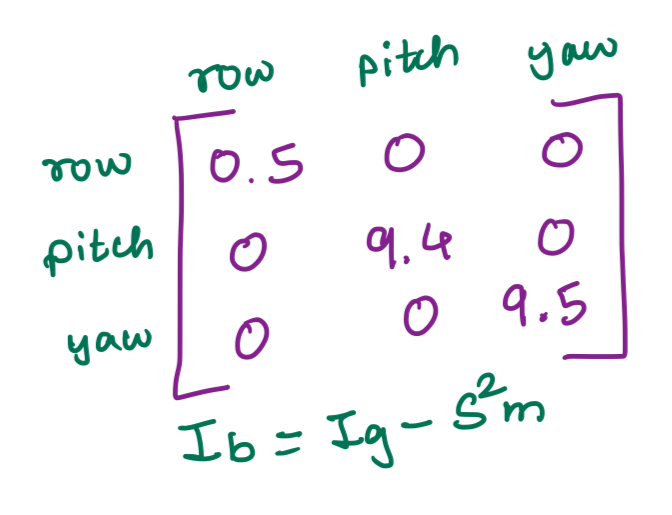 row pitch yaw
row 0.5 0 0
pitch 0 9.4 0
yaw 0 0 9.5
Ib = Ig - S²m